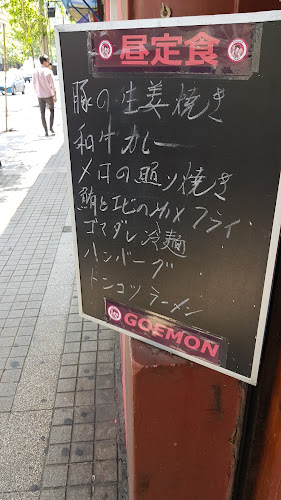 昼定食
豚の生姜焼き
和牛カレー
メロの照り焼き
鮪とエビのミックスフライ
ゴマダレ冷麺
ハンバーグ
トンコツラーメン
GOEMON